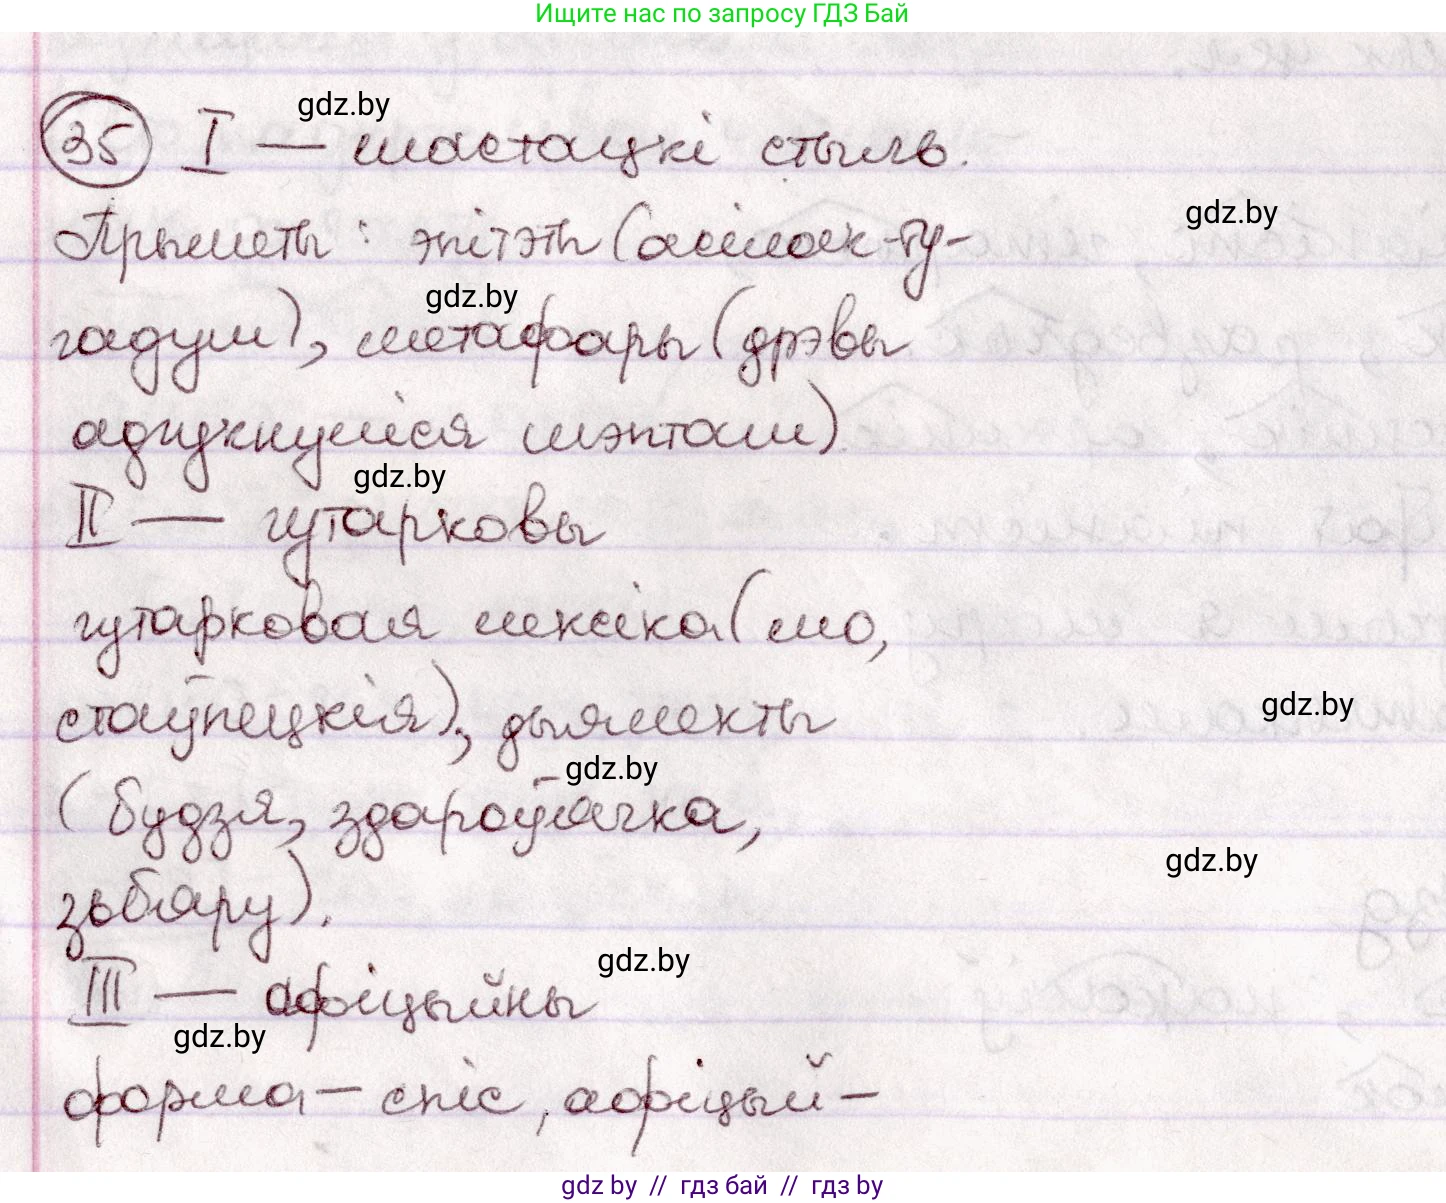 Ищите нас по запросу ГДЗ Бай
gdz.by
35 I — мастацкі стыль.
gdz.by
Прыметы: эпітэты (асілак-ту-
gdz.by
гадум), метафары (дрэвы
адгукнуліся шэптам)
gdz.by
II — гутарковы
гутарковая лексіка (мо,
стаўпецкія), дыялекты
gdz.by
gdz.by
(будзя, здароўячка,
gdz.by
зьбяру).
gdz.by
III — афіцыйны
gdz.by
форма — спіс, афіцый-
gdz.by // гдз бай // гдз by